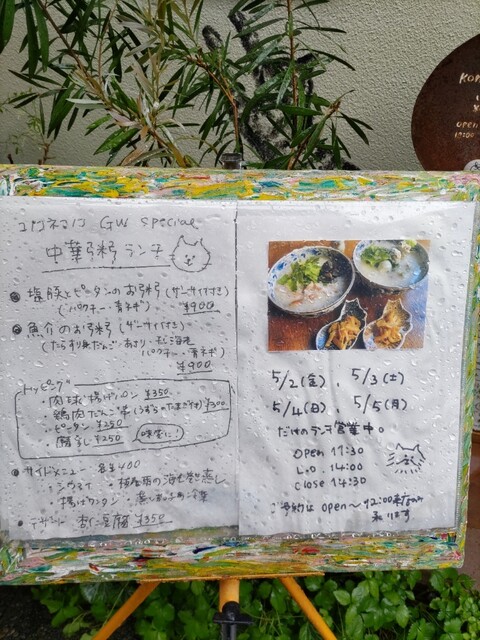 コマネコノコ GW special
中華粥ランチ
塩豚とピータンのお粥 (ザーサイ付き)
(パクチー・青ネギ) ¥900
魚介のお粥 (ザーサイ付き)
(たらすり身だんご・あさり・
パクチー・青ネギ)
¥900
トッピング
・肉球揚げパン ¥350
・鶏肉だんご串 (うずらのたまご付き) ¥300
・ピータン ¥250
・腐乳 ¥250 (味変に!)
サイドメニュー 各¥400
・シウマイ
・揚げワンタン
デザート 杏仁豆腐 ¥350
5/2(金)、5/3(土)
5/4(日)、5/5(月)
だけのランチ営業中。
OPEN 11:30
L.O 14:00
Close 14:30
ご予約は open〜12:00来店のみ
承ります
KOM
OPEN